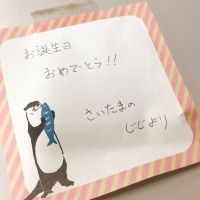 お誕生日
おめでとう!!
さいたまの
じじより